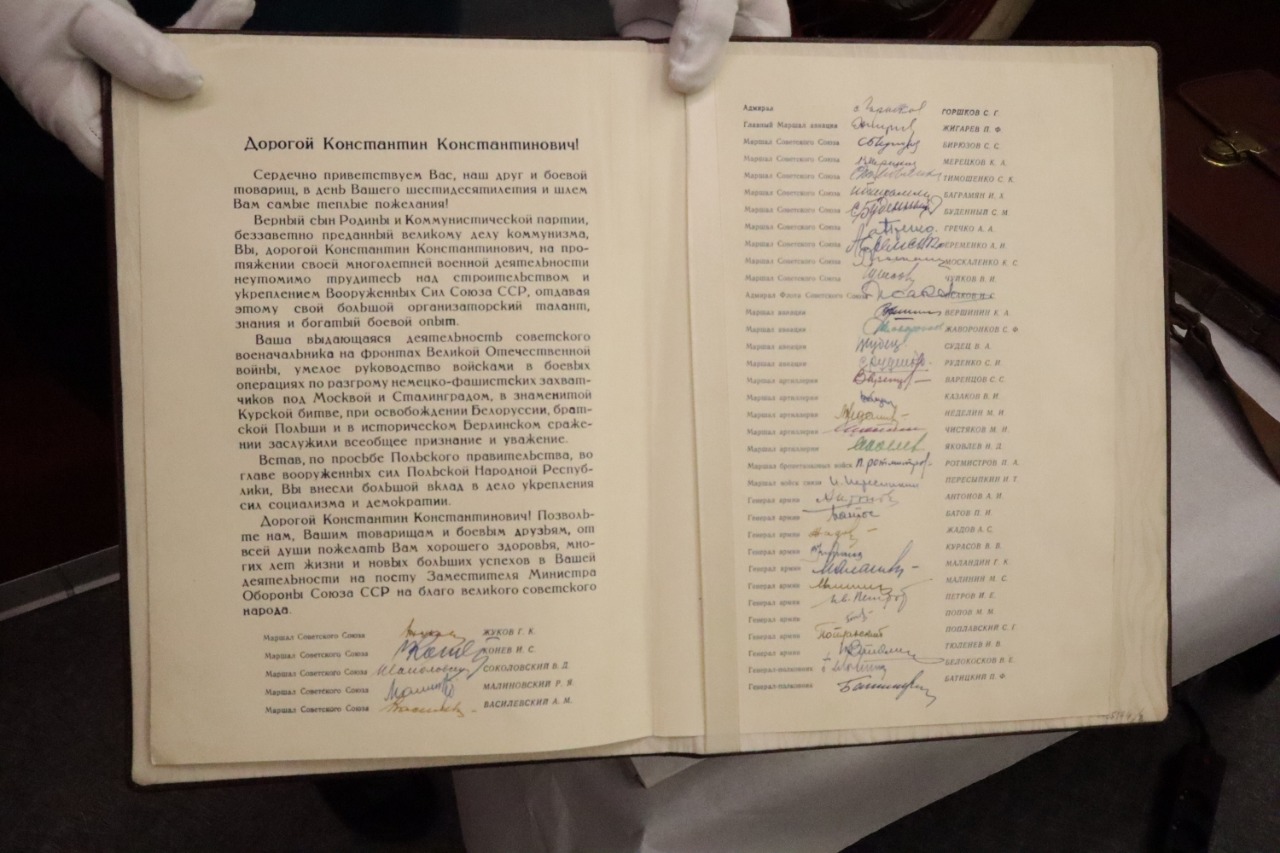 Дорогой Константин Константинович!
Сердечно приветствуем Вас, наш друг и боевой
товарищ, в день Вашего шестидесятилетия и шлем
Вам самые теплые пожелания!
Верный сын Родины и Коммунистической партии,
беззаветно преданный великому делу коммунизма,
Вы, дорогой Константин Константинович, на про-
тяжении своей многолетней военной деятельности
неутомимо трудитесь над строительством и
укреплением Вооруженных Сил Союза ССР, отдавая
этому свой большой организаторский талант,
знания и богатый боевой опыт.
Ваша выдающаяся деятельность советского
военачальника на фронтах Великой Отечественной
войны, умелое руководство войсками в боевых
операциях по разгрому немецко-фашистских захват-
чиков под Москвой и Сталинградом, в знаменитой
Курской битве, при освобождении Белоруссии, брат-
ской Польши и в историческом Берлинском сраже-
нии заслужили всеобщее признание и уважение.
Встав, по просьбе Польского правительства, во
главе вооруженных сил Польской Народной Респуб-
лики, Вы внесли большой вклад в дело укрепления
сил социализма и демократии.
Дорогой Константин Константинович! Позволь-
те нам, Вашим товарищам и боевым друзьям, от
всей души пожелать Вам хорошего здоровья, мно-
гих лет жизни и новых больших успехов в Вашей
деятельности на посту Заместителя Министра
Обороны Союза ССР на благо великого советского
народа.
Маршал Советского Союза ЖУКОВ Г. К.
Маршал Советского Союза КОНЕВ И. С.
Маршал Советского Союза СОКОЛОВСКИЙ В. Д.
Маршал Советского Союза МАЛИНОВСКИЙ Р. Я.
Маршал Советского Союза ВАСИЛЕВСКИЙ А. М.
Адмирал ГОРШКОВ С. Г.
Главный Маршал авиации ЖИГАРЕВ П. Ф.
Маршал Советского Союза БИРЮЗОВ С. С.
Маршал Советского Союза МЕРЕЦКОВ К. А.
Маршал Советского Союза ТИМОШЕНКО С. К.
Маршал Советского Союза БАГРАМЯН И. Х.
Маршал Советского Союза С. Буденный БУДЕННЫЙ С. М.
Маршал Советского Союза ГРЕЧКО А. А.
Маршал Советского Союза ЕРЕМЕНКО А. И.
Маршал Советского Союза МОСКАЛЕНКО К. С.
Маршал Советского Союза ЧУЙКОВ В. И.
Адмирал Флота Советского Союза
Маршал авиации ВЕРШИНИН К. А.
Маршал авиации ЖАВОРОНКОВ С. Ф.
Маршал авиации СУДЕЦ В. А.
Маршал авиации РУДЕНКО С. И.
Маршал артиллерии ВАРЕНЦОВ С. С.
Маршал артиллерии КАЗАКОВ В. И.
Маршал артиллерии НЕДЕЛИН М. И.
Маршал артиллерии ЧИСТЯКОВ М. Н.
Маршал артиллерии ЯКОВЛЕВ Н. Д.
Маршал бронетанковых войск П. Ротмистров РОТМИСТРОВ П. А.
Маршал войск связи И. Пересыпкин ПЕРЕСЫПКИН И. Т.
Генерал армии АНТОНОВ А. И.
Генерал армии БАТОВ П. И.
Генерал армии ЖАДОВ А. С.
Генерал армии КУРАСОВ В. В.
Генерал армии МАЛАНДИН Г. К.
Генерал армии МАЛИНИН М. С.
Генерал армии ПЕТРОВ И. Е.
Генерал армии ПОПОВ М. М.
Генерал армии ПОПЛАВСКИЙ С. Г.
Генерал армии ТЮЛЕНЕВ И. В.
Генерал-полковник БЕЛОКОСКОВ В. Е.
Генерал-полковник БАТИЦКИЙ П. Ф.